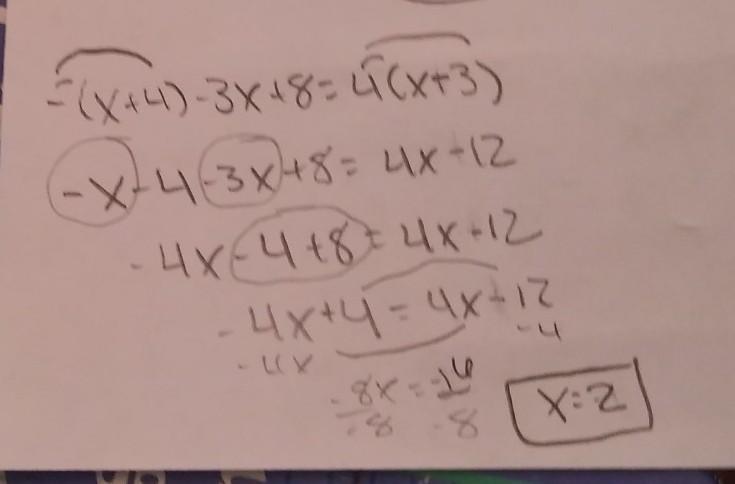 -(x+4)-3x+8=4(x+3)
-x-4-3x+8=4x-12
-4x-4+8=4x-12
-4x+4=4x-12
-4x -4
-8x=-16
-8 -8
x=2